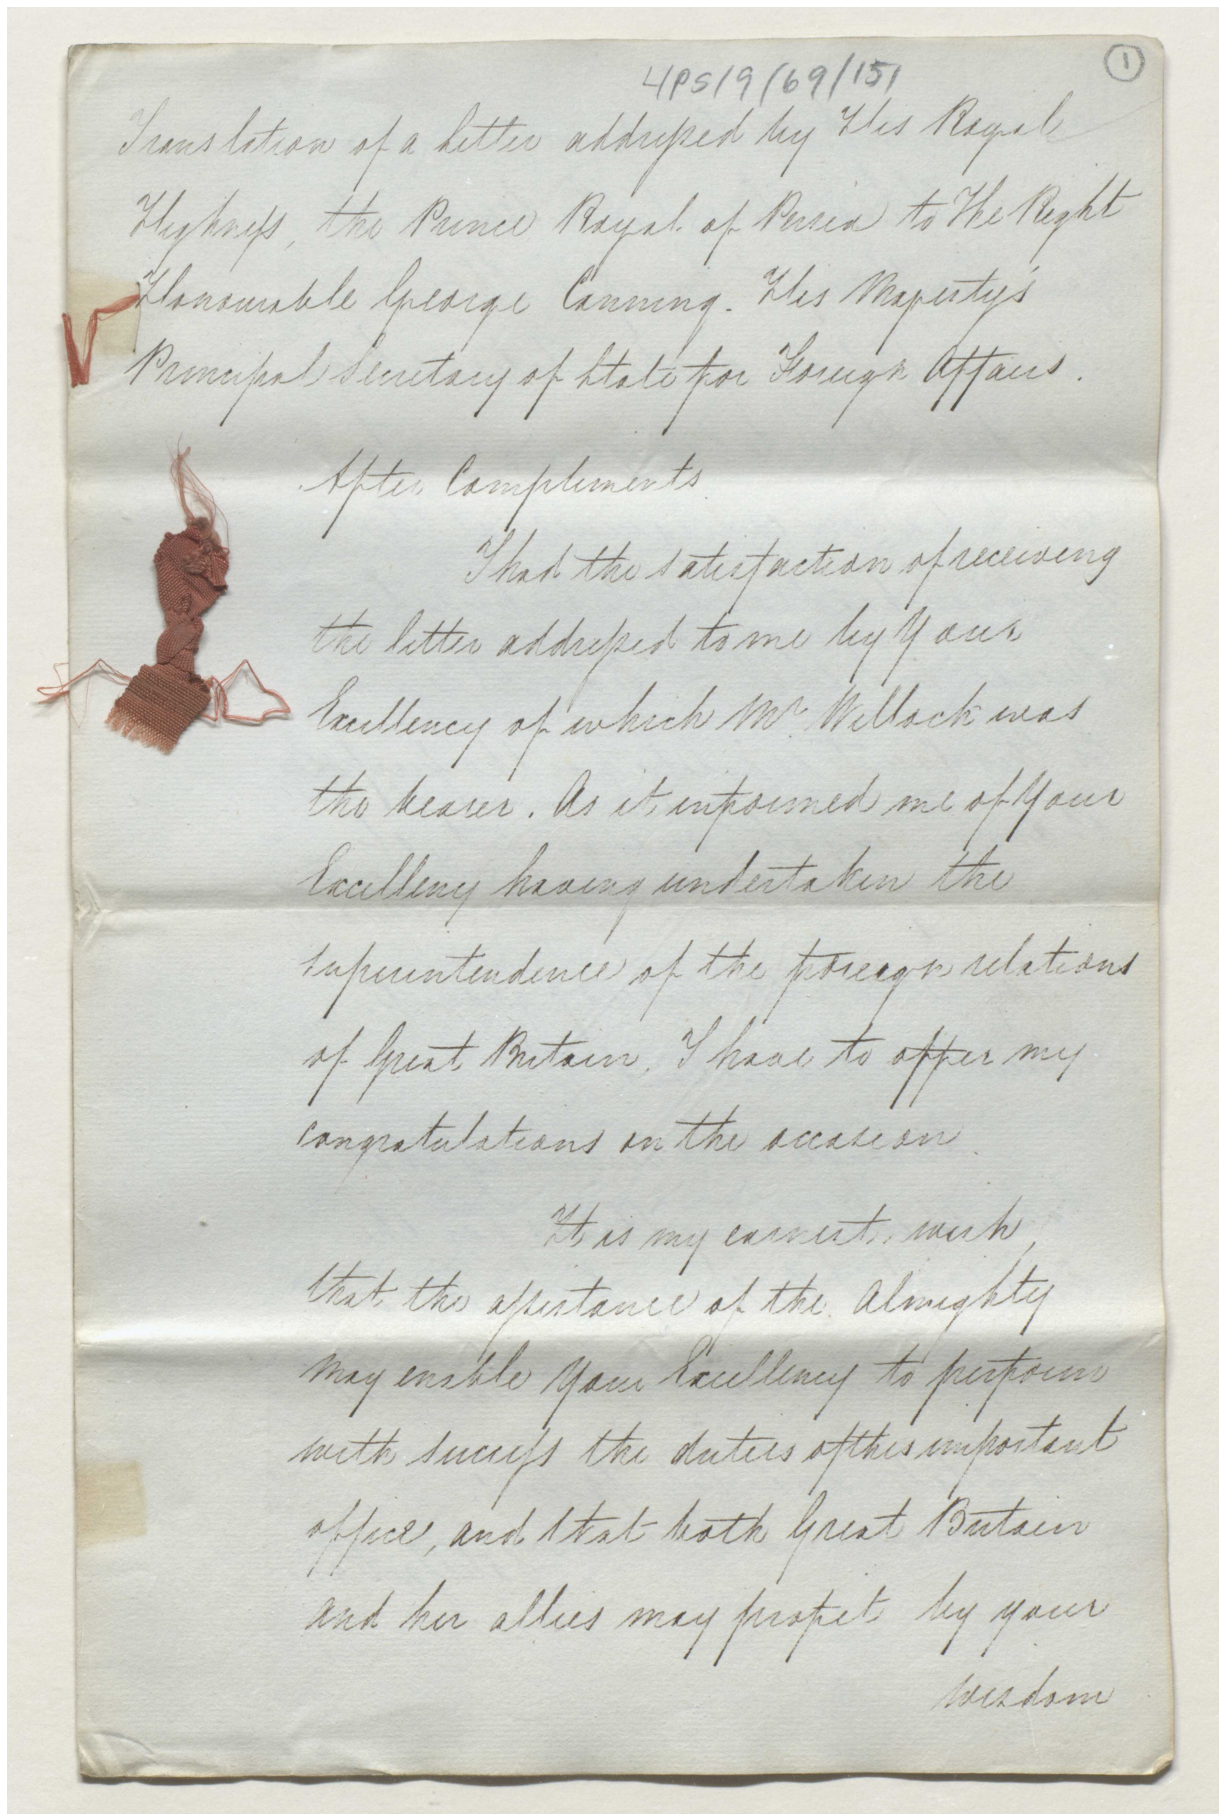 LPS/9/69/151
1
Translation of a letter addressed by His Royal
Highness, the Prince Royal of Persia to The Right
Honourable George Canning. His Majesty's
Principal Secretary of State for Foreign Affairs.
After Compliments
I had the satisfaction of receiving
the letter addressed to me by Your
Excellency of which Mr. Willock was
the bearer. As it informed me of Your
Excellency having undertaken the
superintendence of the foreign relations
of Great Britain, I have to offer my
congratulations on the occasion.
It is my earnest wish,
that the assistance of the Almighty
may enable Your Excellency to perform
with success the duties of this important
office, and that both Great Britain
and her allies may profit by your
wisdom